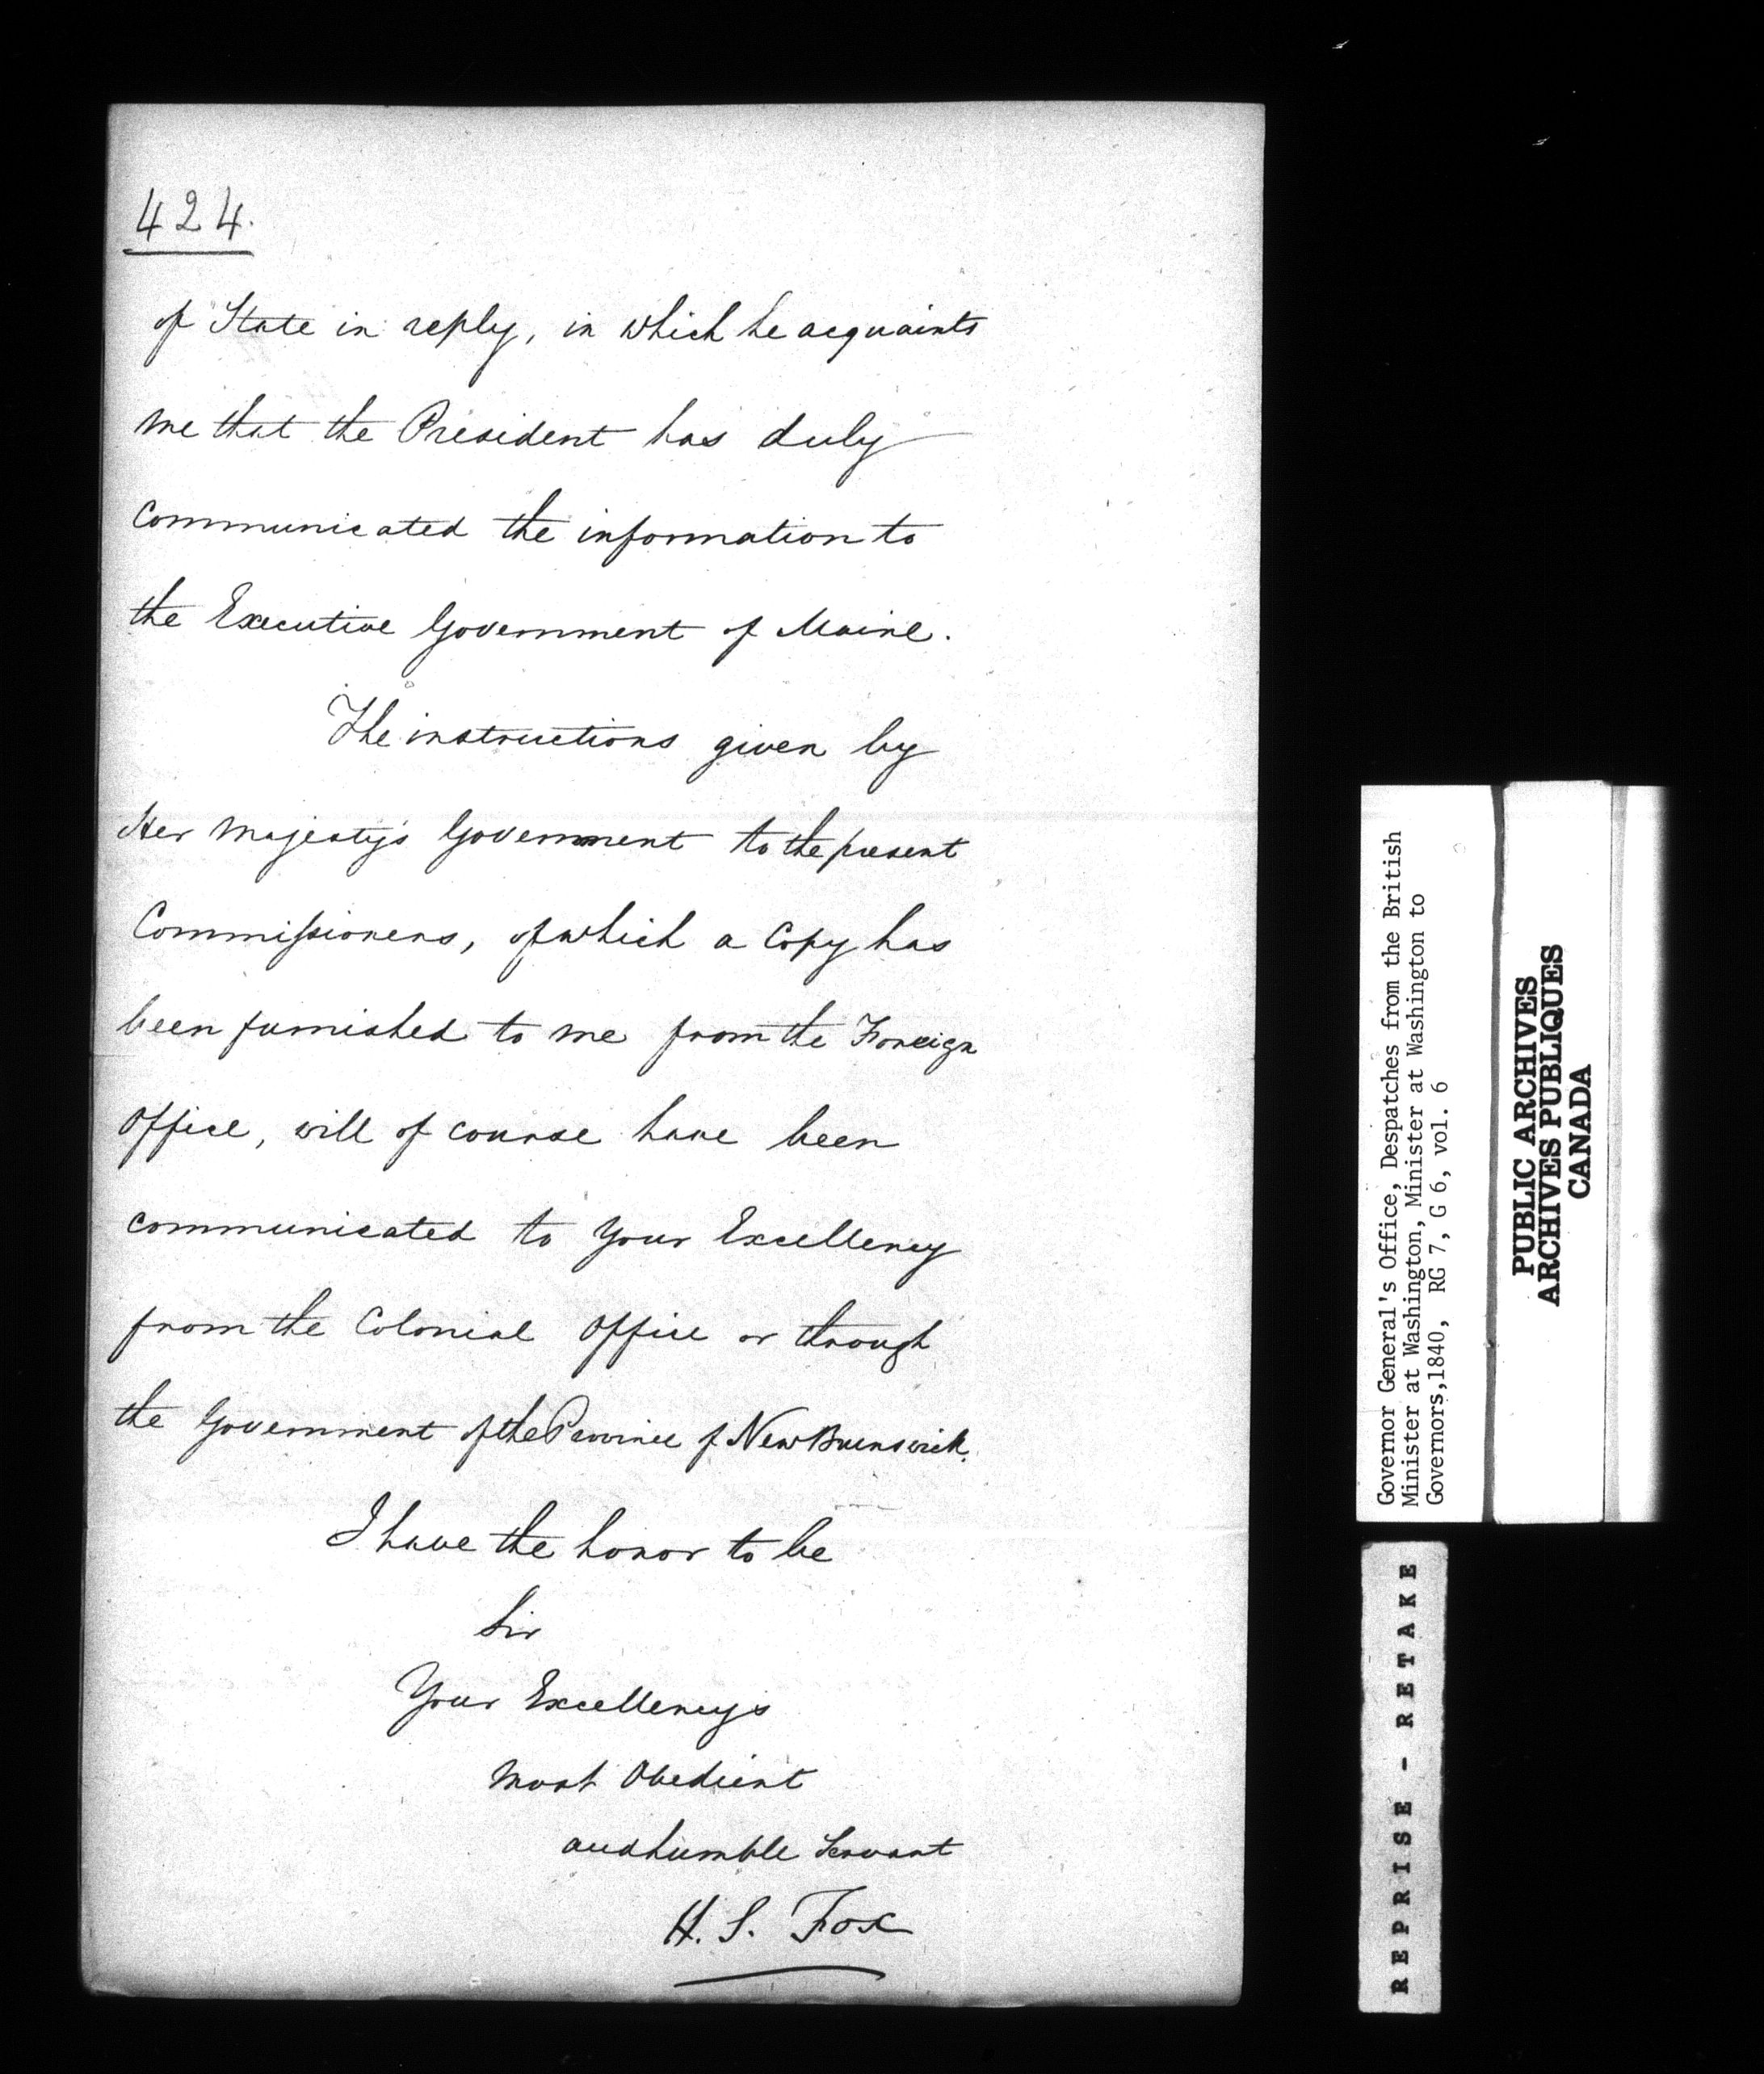 424.
of State in reply, in which he acquaints
me that the President has duly
communicated the information to
the Executive Government of Maine.
The instructions given by
Her Majesty's Government to the present
Commissioners, of which a Copy has
been furnished to me from the Foreign
Office, will of course have been
communicated to Your Excellency
from the Colonial Office or through
the Government of the Province of New Brunswick.
I have the honor to be
Sir
Your Excellency's
Most Obedient
and humble Servant
H. S. Fox
Governor General's Office, Despatches from the British
Minister at Washington, Minister at Washington to
Governors,1840, RG 7, G 6, vol. 6
PUBLIC ARCHIVES
ARCHIVES PUBLIQUES
CANADA
REPRISE - RETAKE